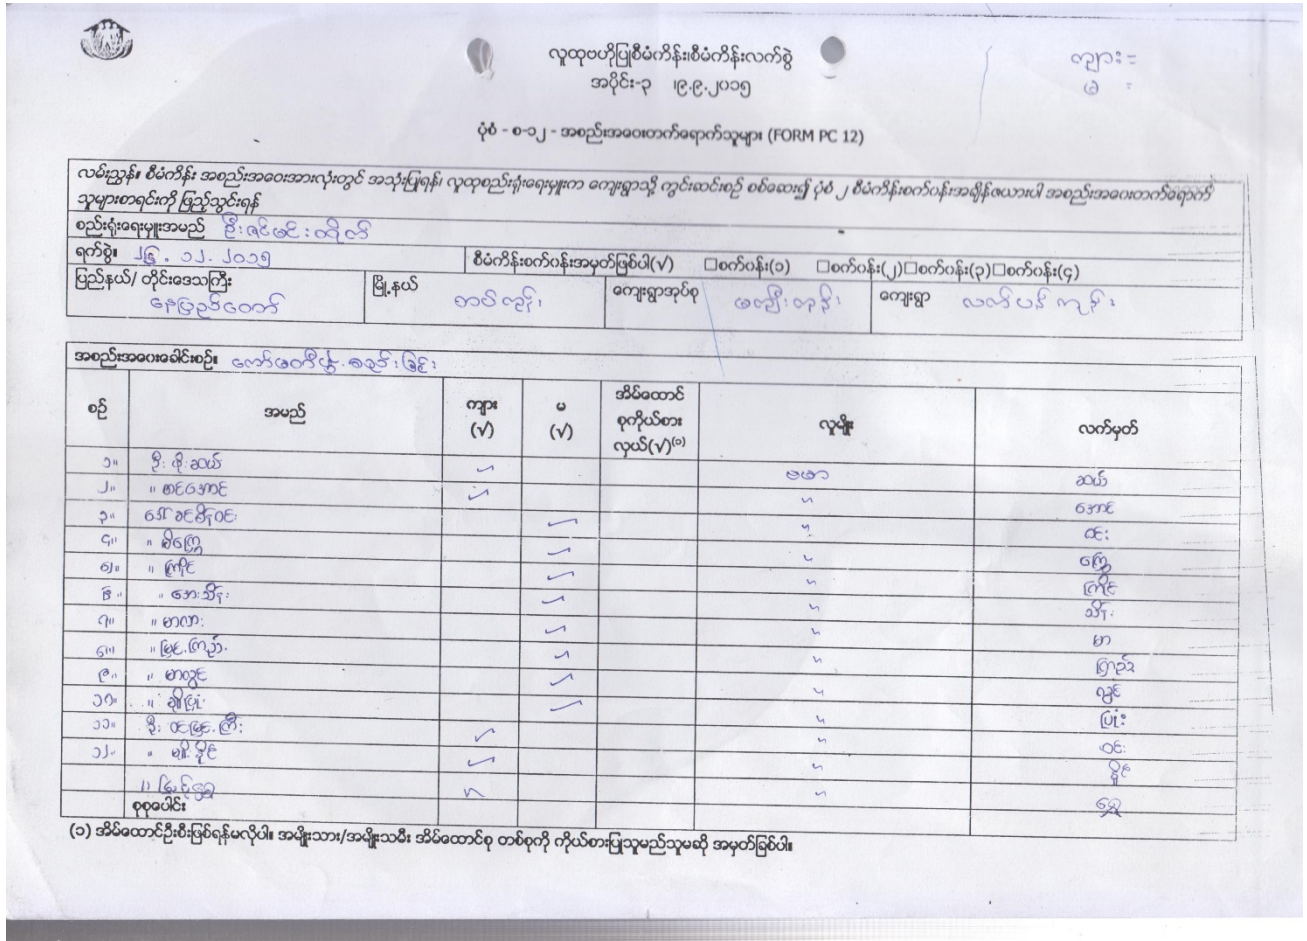 လူထုဗဟိုပြုစီမံကိန်း၊စီမံကိန်းလက်စွဲ
ကျား =
အပိုင်း-၃ ၊၉.၉.၂၀၁၅
မ =
ပုံစံ - စ-၁၂ - အစည်းအဝေးတက်ရောက်သူများ (FORM PC 12)
လမ်းညွှန်။ စီမံကိန်း အစည်းအဝေးအားလုံးတွင် အသုံးပြုရန်၊ လူထုစည်းရုံးရေးမှူးက ကျေးရွာသို့ ကွင်းဆင်းစဉ် စစ်ဆေး၍ ပုံစံ ၂ စီမံကိန်းစက်ဝန်းအချိန်ဇယားပါ အစည်းအဝေးတက်ရောက်
သူများစာရင်းကို ဖြည့်သွင်းရန်
စည်းရုံးရေးမှူးအမည် ဦးဇင်မင်းထိုက်
ရက်စွဲ။ ၂၆.၁၂.၂၀၁၅ စီမံကိန်းစက်ဝန်းအမှတ်ဖြစ်ပါ(√) □စက်ဝန်း(၁) □စက်ဝန်း(၂)□စက်ဝန်း(၃)□စက်ဝန်း(၄)
ပြည်နယ်/ တိုင်းဒေသကြီး နေပြည်တော် မြို့နယ် တပ်ကုန်း ကျေးရွာအုပ်စု မကျီးတုန်း ကျေးရွာ လက်ပန်ကုန်း
အစည်းအဝေးခေါင်းစဉ်။ ကော်မတီဖွဲ့စည်းခြင်း
စဉ် အမည် ကျား (√) မ (√) အိမ်ထောင်စုကိုယ်စားလှယ်(√)⁽¹⁾ လူမျိုး လက်မှတ်
၁။ ဦးဖိုးဆယ် √ ဗမာ ဆယ်
၂။ " စင်အောင် √ " အောင်
၃။ ဒေါ်ခင်စိန်ဝင်း √ " ဝင်း
၄။ " စိန်ကြွေ √ " ကြွေ
၅။ " ကြိုင် √ " ကြိုင်
၆။ " အေးသိန်း √ " သိန်း
၇။ " မာလာ √ " မာ
၈။ " မြင့်ကြည် √ " ကြည်
၉။ " မာလွင် √ " လွင်
၁၀။ " ချိုပြုံး √ " ပြုံး
၁၁။ ဦးဝင်းမြင့်ကြီး √ " ဝင်း
၁၂။ " မျိုးနိုင် √ " နိုင်
" √ " ရွှေ
စုစုပေါင်း
(၁) အိမ်ထောင်ဦးစီးဖြစ်ရန်မလိုပါ။ အမျိုးသား/အမျိုးသမီး အိမ်ထောင်စု တစ်စုကို ကိုယ်စားပြုသူမည်သူမဆို အမှတ်ခြစ်ပါ။